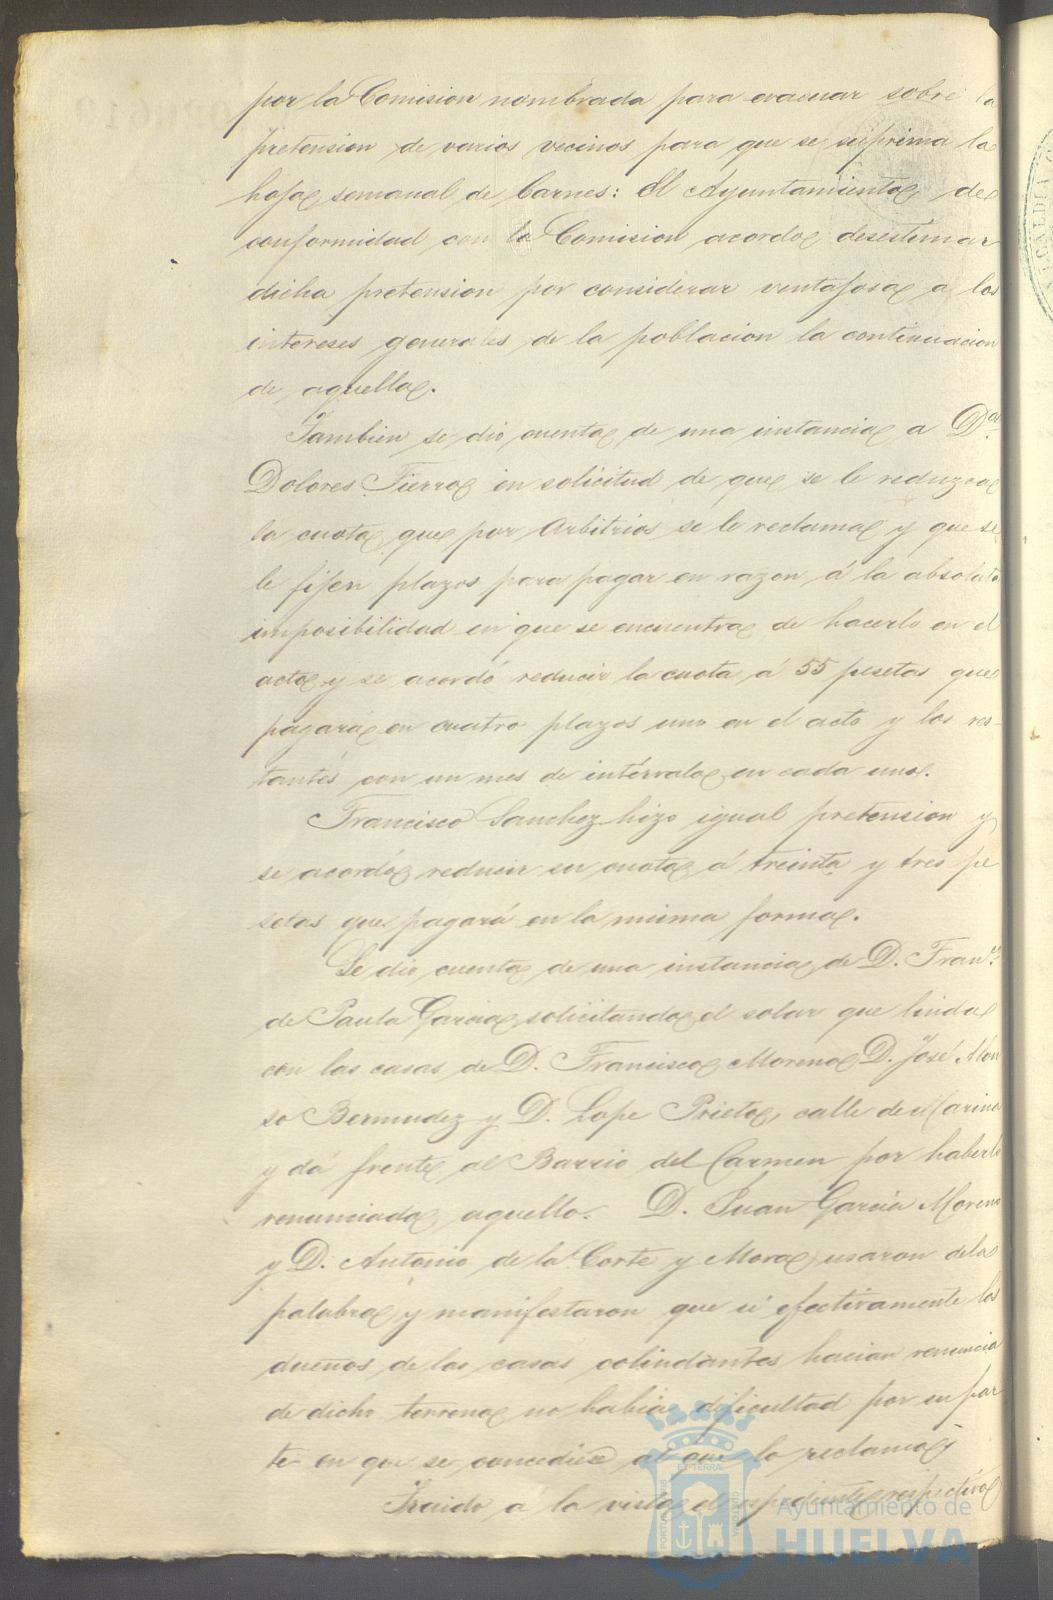 por la Comision nombrada para evacuar sobre la
pretension de varios vecinos para que se suprima la
hoja semanal de Carnes: El Ayuntamiento de
conformidad con la Comision acordo desestimar
dicha pretension por considerar ventajosa a los
intereses generales de la poblacion la continuacion
de aquella.
Tambien se dio cuenta de una instancia a D.ª
Dolores Tierra en solicitud de que se le reduzca
la cuota que por Arbitrios se le reclama y que se
le fijen plazos para pagar en razon á la absoluta
imposibilidad en que se encuentra de hacerlo en el
acto, y se acordó reducir la cuota á 55 pesetas que
pagará en cuatro plazos uno en el acto y los res-
tantes con un mes de intérvalo en cada uno.
Francisco Sanchez hizo igual pretension y
se acordó reducir su cuota á treinta y tres pe
setas que pagará en la misma forma.
Se dio cuenta de una instancia de D. Franco.
de Paula Garcia solicitando el solar que linda
con las casas de D. Francisco Moreno D. José Alon
so Bermudez y D. Lope Prieto, calle de Marina
y dá frente al Barrio del Carmen por haberlo
renunciado aquello. D. Juan Garcia Moreno
y D. Antonio de la Corte y Mora usaron de la
palabra y manifestaron que si efectivamente los
dueños de las casas colindantes hacian renuncia
de dicho terreno no habia dificultad por su par
te en que se concediese al que lo reclama.
Traido á la vista el expediente respectivo
PORTUS MARIS ET TERRAE CUSTODIA
Ayuntamiento de
HUELVA